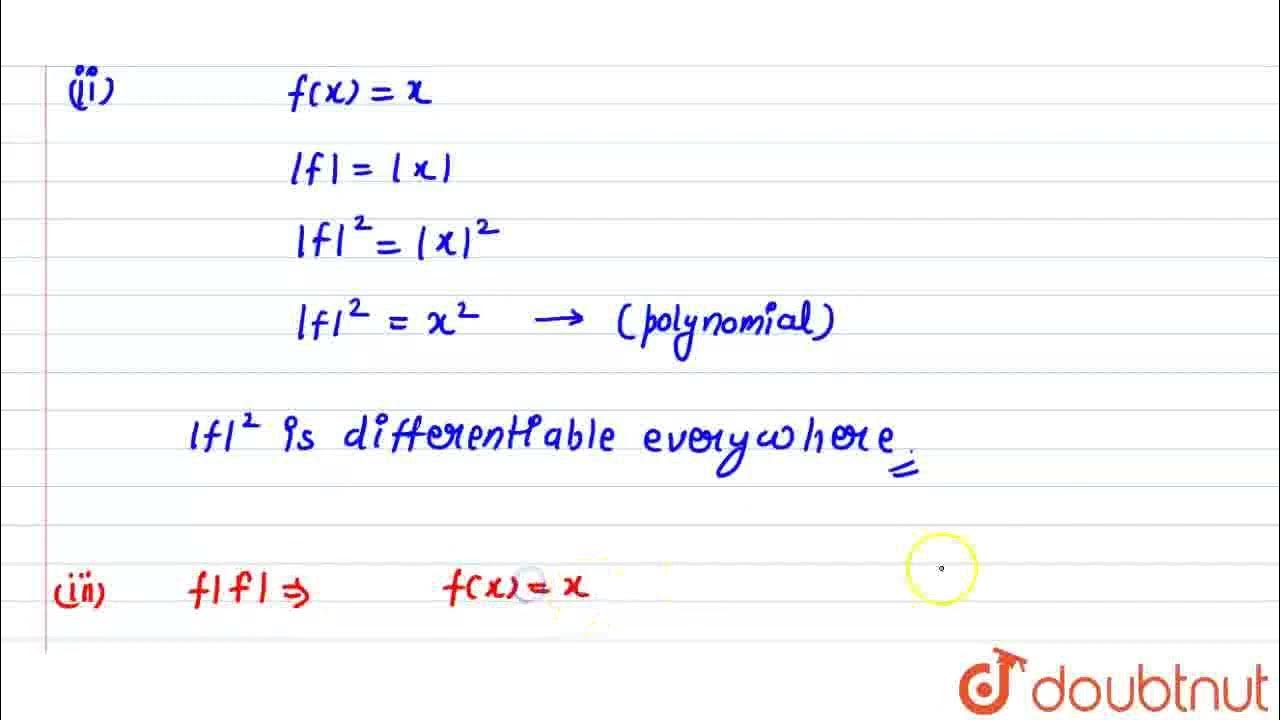 (ii) f(x) = x
|f| = |x|
|f|² = |x|²
|f|² = x² → (polynomial)
|f|² is differentiable everywhere.
(iii) f|f| ⇒ f(x) = x
doubtnut